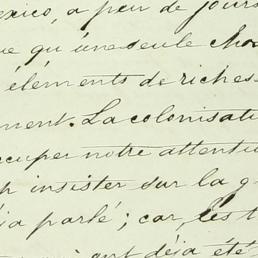 exico, a peu de jours
ue qu'une seule cho
éléments de riches
ment. La colonisati
ccuper notre attentio
insister sur la g
jà parlé; car, les t
ont déjà été